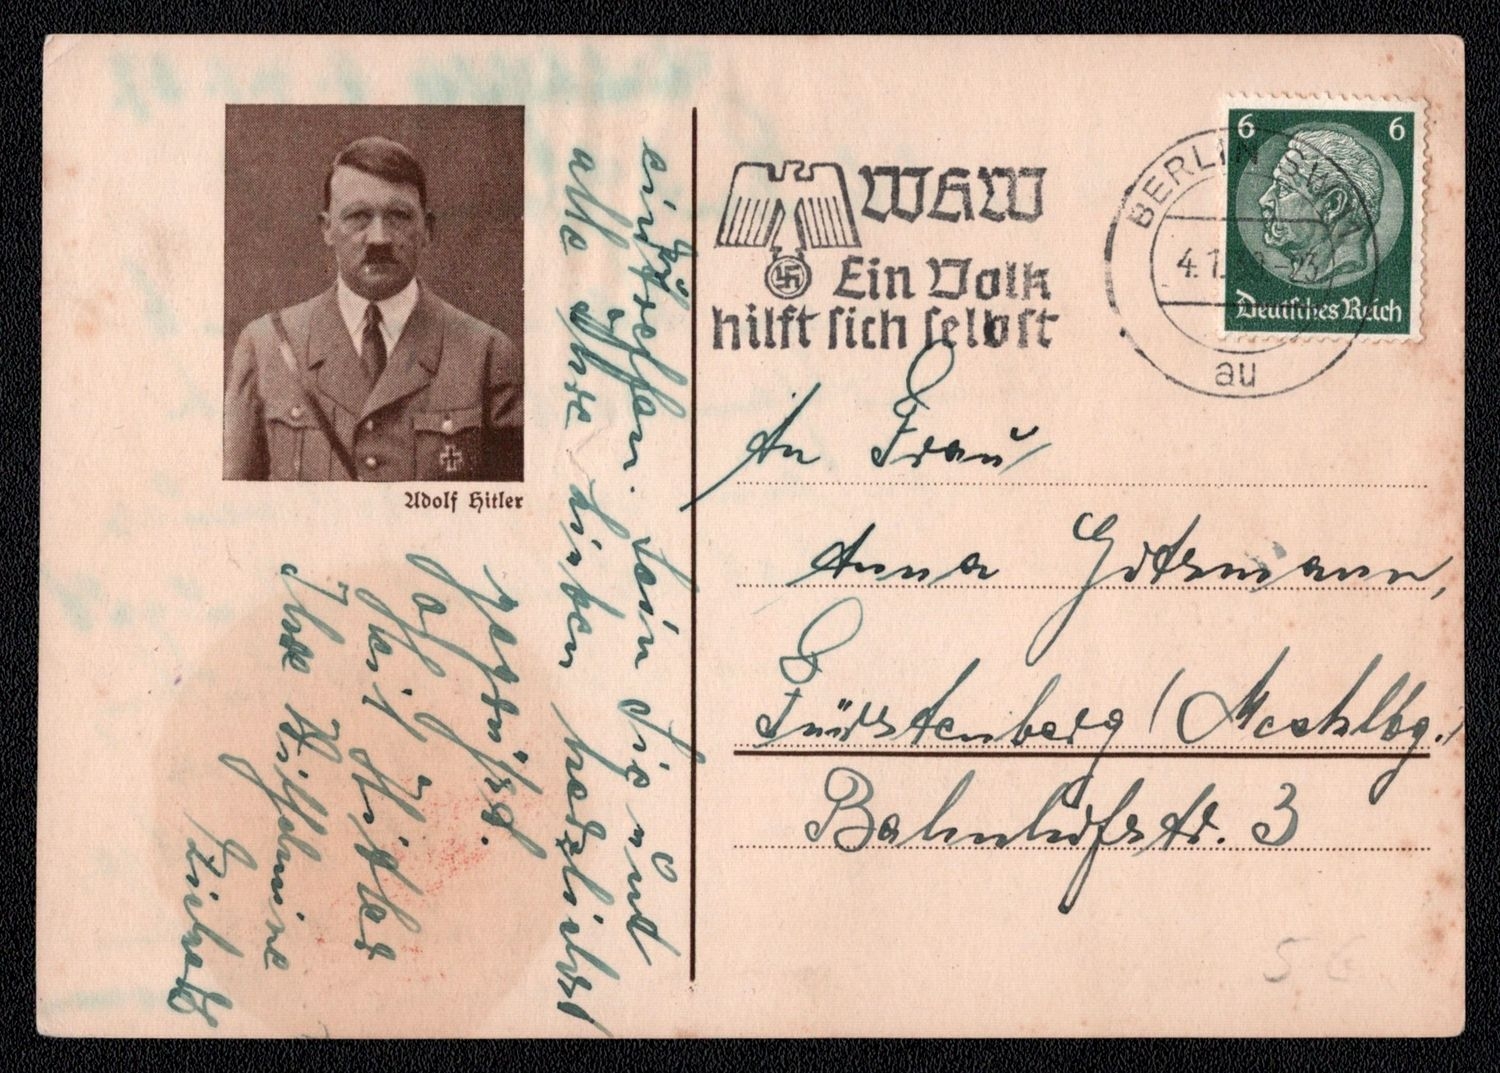 Adolf Hitler
WHW
Ein Volk
hilft sich selbst
BERLIN SW 11
4.1. -23
au
6 6
Deutsches Reich
An Frau
Anna
Fürstenberg / Mecklbg.
Bahnhofstr. 3
eintreffen. Sein Sie und
alle Ihre lieben herzlichst
gegrüßt.
Heil Hitler
Ihre Wilhelmine
S-G